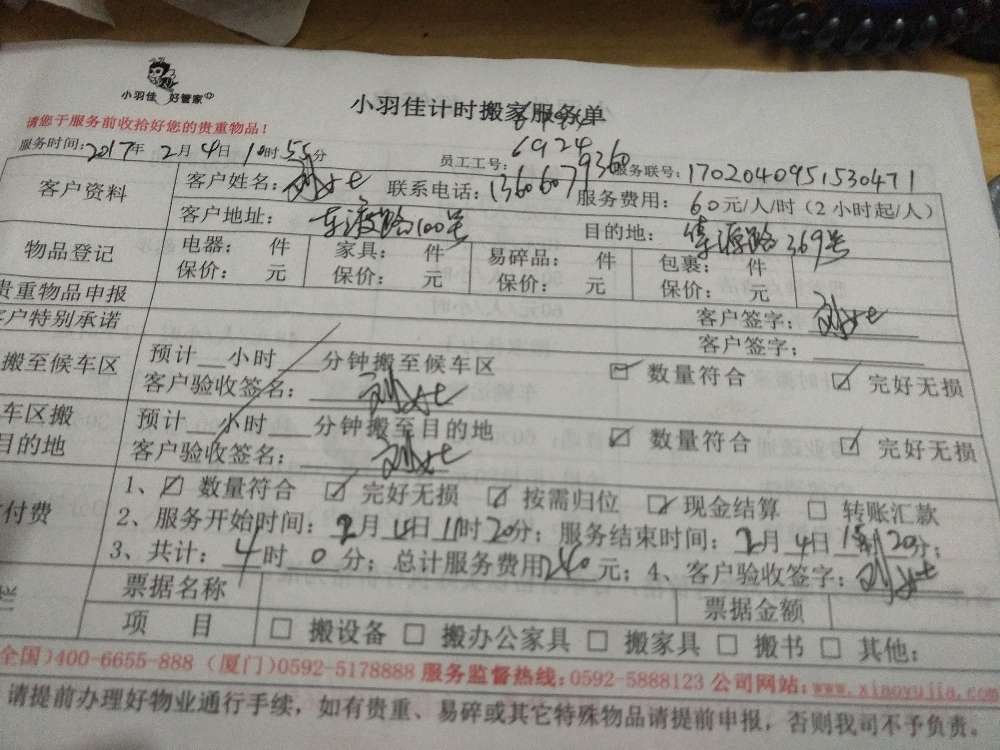 小羽佳 好管家
小羽佳计时搬家服务单
请您于服务前收拾好您的贵重物品！
服务时间：2017年2月4日10时55分 员工工号：6924 服务联号：1702040951530471
客户资料 客户姓名： 联系电话：13606079360 服务费用：60元/人/时（2小时起/人）
客户地址：东渡路100号 目的地：369号
物品登记 电器： 件 家具： 件 易碎品： 件 包裹： 件
保价： 元 保价： 元 保价： 元 保价： 元
贵重物品申报 客户签字：
客户特别承诺 客户签字：
搬至候车区 预计 小时 分钟搬至候车区 ☑ 数量符合 ☑ 完好无损
客户验收签名：
车区搬 预计 小时 分钟搬至目的地 ☑ 数量符合 ☑ 完好无损
目的地 客户验收签名：
付费 1、☑ 数量符合 ☑ 完好无损 ☑ 按需归位 ☑ 现金结算 □ 转账汇款
2、服务开始时间：2月4日11时20分；服务结束时间：2月4日15时20分；
3、共计：4时0分；总计服务费用240元；4、客户验收签字：
栏 票据名称 票据金额
项 目 □ 搬设备 □ 搬办公家具 □ 搬家具 □ 搬书 □ 其他：
全国)400-6655-888 (厦门)0592-5178888 服务监督热线：0592-5888123 公司网站：www.xiaoyujia.com
请提前办理好物业通行手续，如有贵重、易碎或其它特殊物品请提前申报，否则我司不予负责。